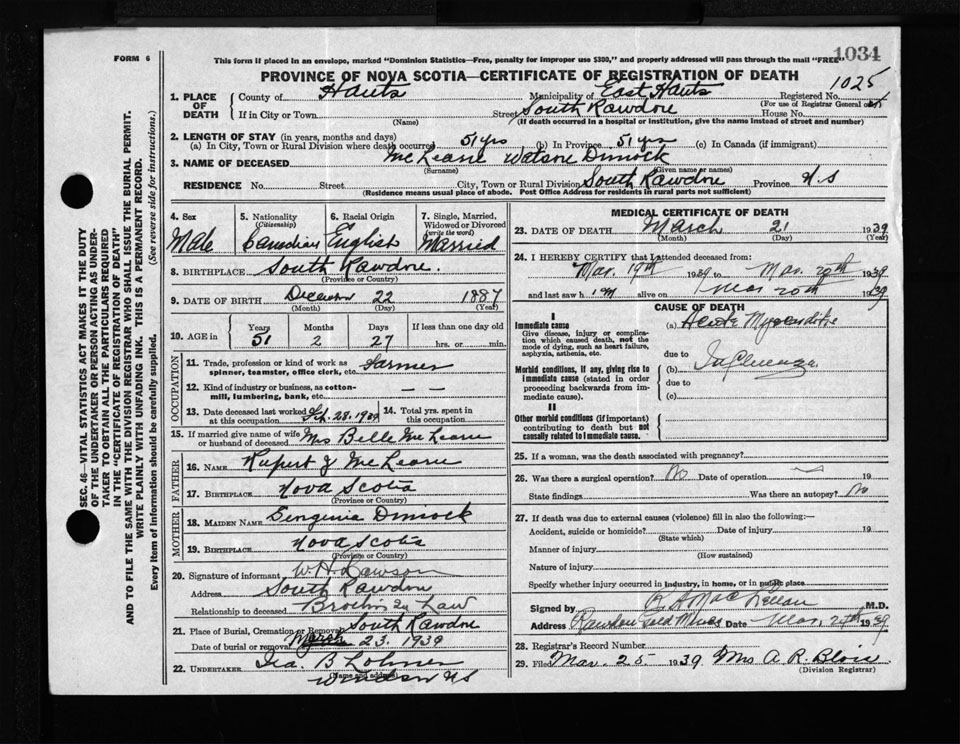 1034
FORM 6
This form if placed in an envelope, marked "Dominion Statistics—Free, penalty for improper use $300," and properly addressed will pass through the mail "FREE"
PROVINCE OF NOVA SCOTIA—CERTIFICATE OF REGISTRATION OF DEATH
1025
1. PLACE OF DEATH
County of Hants Municipality of East Hants Registered No.
(For use of Registrar General only)
If in City or Town Street South Rawdon House No.
(Name) (If death occurred in a hospital or institution, give the name instead of street and number)
2. LENGTH OF STAY (in years, months and days)
(a) In City, Town or Rural Division where death occurred 51 yrs (b) In Province 51 yrs (c) In Canada (if immigrant)
3. NAME OF DECEASED McLearn Watson Dimock
(Surname) (Given name or names)
RESIDENCE No. Street City, Town or Rural Division South Rawdon Province N.S
(Residence means usual place of abode. Post Office Address for residents in rural parts not sufficient)
4. Sex
Male
5. Nationality
(Citizenship)
Canadian
6. Racial Origin
English
7. Single, Married, Widowed or Divorced
(write the word)
Married
8. BIRTHPLACE South Rawdon.
(Province or Country)
9. DATE OF BIRTH December 22 1887
(Month) (Day) (Year)
10. AGE in
Years Months Days If less than one day old
51 2 27 hrs. or min.
OCCUPATION
11. Trade, profession or kind of work as spinner, teamster, office clerk, etc. Farmer
12. Kind of industry or business, as cotton-mill, lumbering, bank, etc. — —
13. Date deceased last worked at this occupation Feb. 28. 1939
14. Total yrs. spent in this occupation
15. If married give name of wife or husband of deceased Mrs Belle McLearn
FATHER
16. NAME Rupert J McLearn
17. BIRTHPLACE Nova Scotia
(Province or Country)
MOTHER
18. MAIDEN NAME Dimock
19. BIRTHPLACE Nova Scotia
(Province or Country)
20. Signature of informant W. H. Lawson
Address South Rawdon
Relationship to deceased Brother In Law
21. Place of Burial, Cremation or Removal South Rawdon
Date of burial or removal March 23. 1939
22. UNDERTAKER Ira. B
(Name and address)
Windsor NS
MEDICAL CERTIFICATE OF DEATH
23. DATE OF DEATH March 21 1939
(Month) (Day) (Year)
24. I HEREBY CERTIFY that I attended deceased from:
Mar. 19th 1939 to Mar. 20th 1939
and last saw h im alive on Mar 20th 1939
CAUSE OF DEATH
I
Immediate cause
Give disease, injury or complication which caused death, not the mode of dying, such as heart failure, asphyxia, asthenia, etc.
(a) Acute Myocarditis
due to
Morbid conditions, if any, giving rise to immediate cause (stated in order proceeding backwards from immediate cause).
(b) Influenza
due to
(c)
II
Other morbid conditions (if important) contributing to death but not causally related to immediate cause.
25. If a woman, was the death associated with pregnancy?
26. Was there a surgical operation? No Date of operation 19
State findings Was there an autopsy? No
27. If death was due to external causes (violence) fill in also the following:—
Accident, suicide or homicide? Date of injury 19
(State which)
Manner of injury
(How sustained)
Nature of injury
Specify whether injury occurred in industry, in home, or in public place
Signed by MacLellan M.D.
Address Rawdon Gold Mines Date Mar. 24th 1939
28. Registrar's Record Number
29. Filed Mar. 25 1939 Mrs A. R. Blois
(Division Registrar)
SEC. 46—VITAL STATISTICS ACT MAKES IT THE DUTY
OF THE UNDERTAKER OR PERSON ACTING AS UNDER-
TAKER TO OBTAIN ALL THE PARTICULARS REQUIRED
IN THE "CERTIFICATE OF REGISTRATION OF DEATH"
AND TO FILE THE SAME WITH THE DIVISION REGISTRAR WHO SHALL ISSUE THE BURIAL PERMIT.
WRITE PLAINLY WITH UNFADING INK. THIS IS A PERMANENT RECORD.
Every item of information should be carefully supplied. (See reverse side for instructions.)